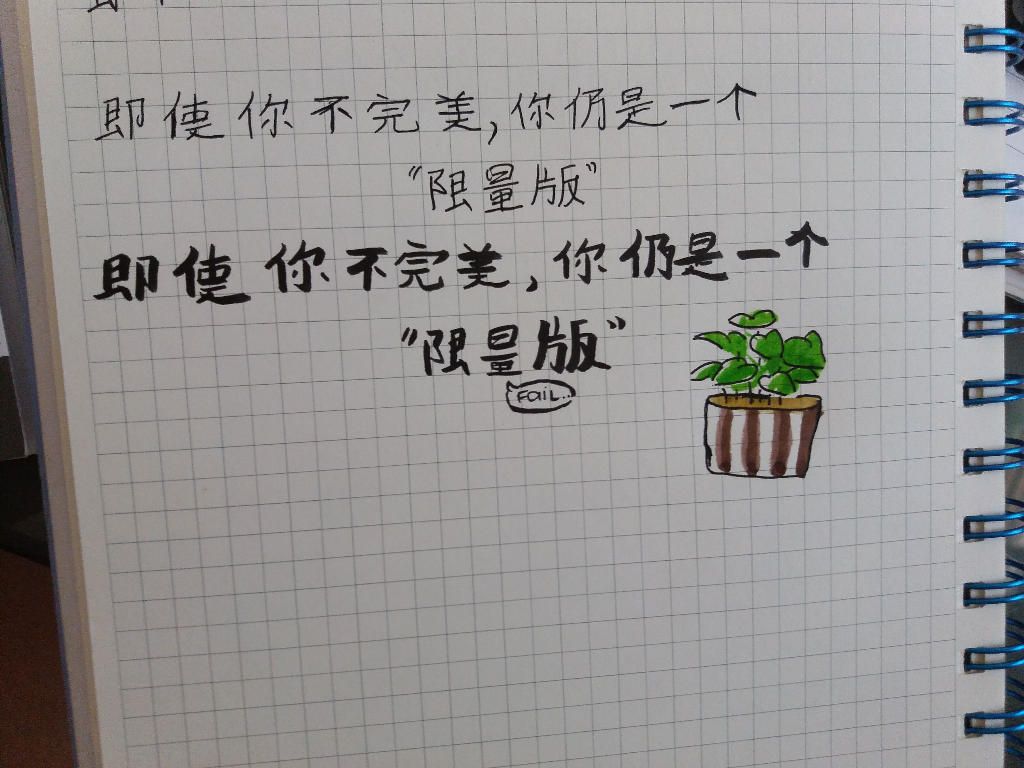 即使你不完美,你仍是一个
“限量版”
即使你不完美,你仍是一个
“限量版”
FAIL..